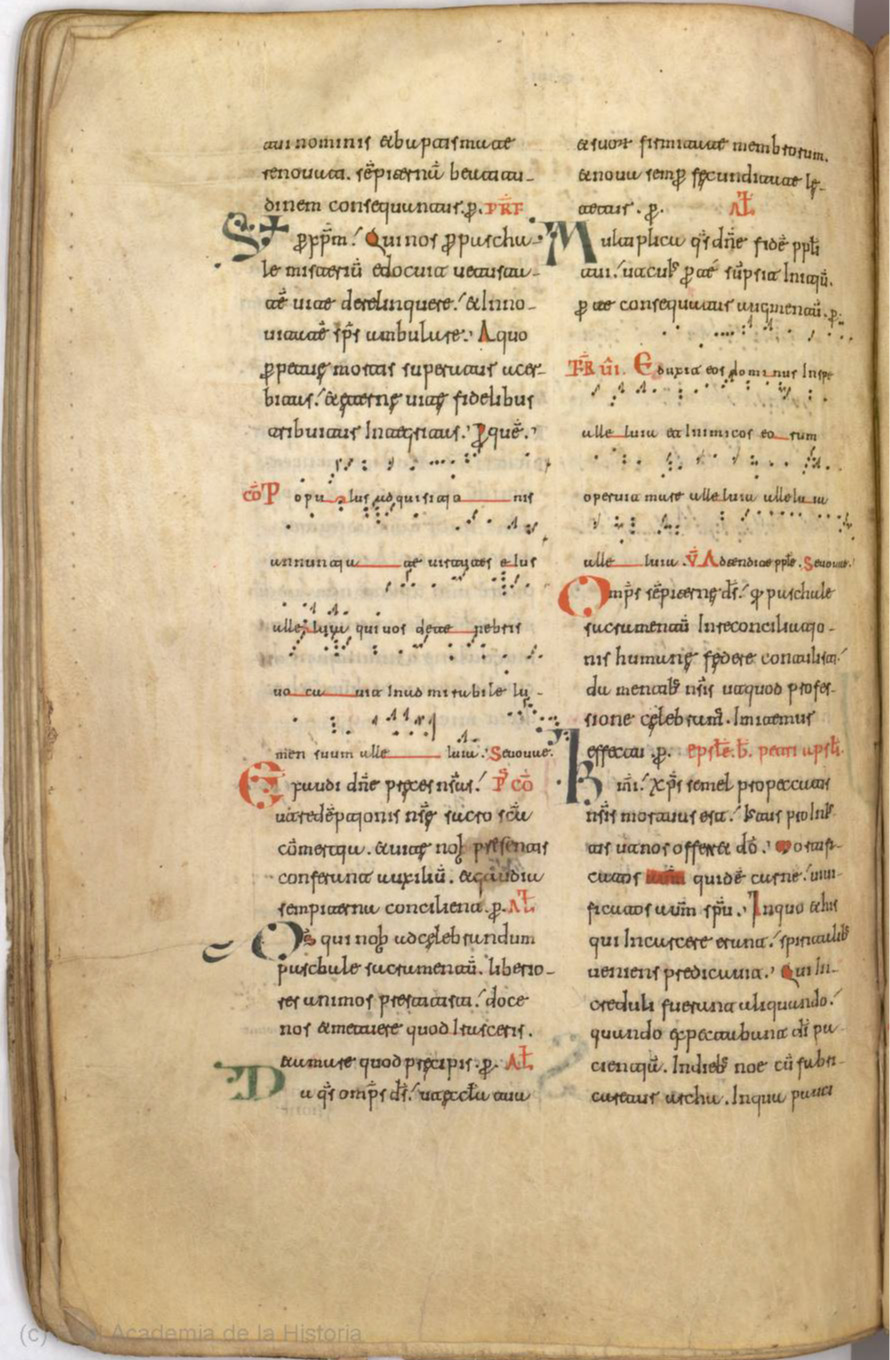 tui nominis & baptismate
renouata. sēpiternū beatitu-
dinem consequantur. p̱. PRF
St p̱ xp̄m. Qui nos p̱ pascha-
le misteriū edocuit uetusta-
tē uite derelinquere. & Inno-
uitatē sp̄s ambulare. A quo
p̱petuę mortis superatur acer-
bitas. & ęternę uitę fidelibus
tribuitur Integritas. p̱ quē.
CŌ Populus adquisitionis
annuntiate uirtutes eIus
alleluia qui uos de tenebris
uocauit In admirabile lu-
men suum alleluia. Seuouae.
Exaudi dn̄e pręces nr̄as. P̄ CŌ
ut redēptionis nr̄ę sacro scā
cōmertia. & uitę nob presentis
conferant auxiliū. & gaudia
sempiterna concilient. p̱. AL̄
Ds̄ qui nob ad cęlebrandum
paschale sacramentū. liberio-
res animos prestitisti. doce
nos & metuere quod Irasceris.
& amare quod pręcipis. p̱. AL̄
Da qs̄ omp̄s ds̄. ut ęccla tua
& suor firmitate membrorum.
& noua semp̱ fęcunditate lę-
tetur. p̱. AL̄
Multiplica qs̄ dn̄e fidē ppli
tui. ut cuIs p̱ te sūpsit Initiū.
p̱ te consequatur augmentū. p̱.
FR̄ UI. Eduxit eos dominus In spe
alleluia et Inimicos eorum
operuit mare alleluia alleluia
alleluia. V̄ Adtendite pple. Seuouae.
Omp̄s sēpiternę ds̄. q̱ paschale
sacramentū In reconciliatio-
nis humanę fędere contulisti.
da mentib nr̄is ut quod profes-
sione cęlebram. Imitemur
effectu. p̱. epstlē. b̄. petri apstli.
Kmi. Xp̄s semel pro peccatis
nr̄is mortuus est. Ists pro InIs-
tis ut nos offerret dō. Mortifi-
catos quidē carne. uiui-
ficatos autm̄ spū. In quo & his
qui In carcere erant. spiritualib
ueniens predicauit. Qui In-
creduli fuerunt aliquando.
quando expectabant di pa-
cientiā. In dieb noe cū fabri-
caretur archa. In qua pauci